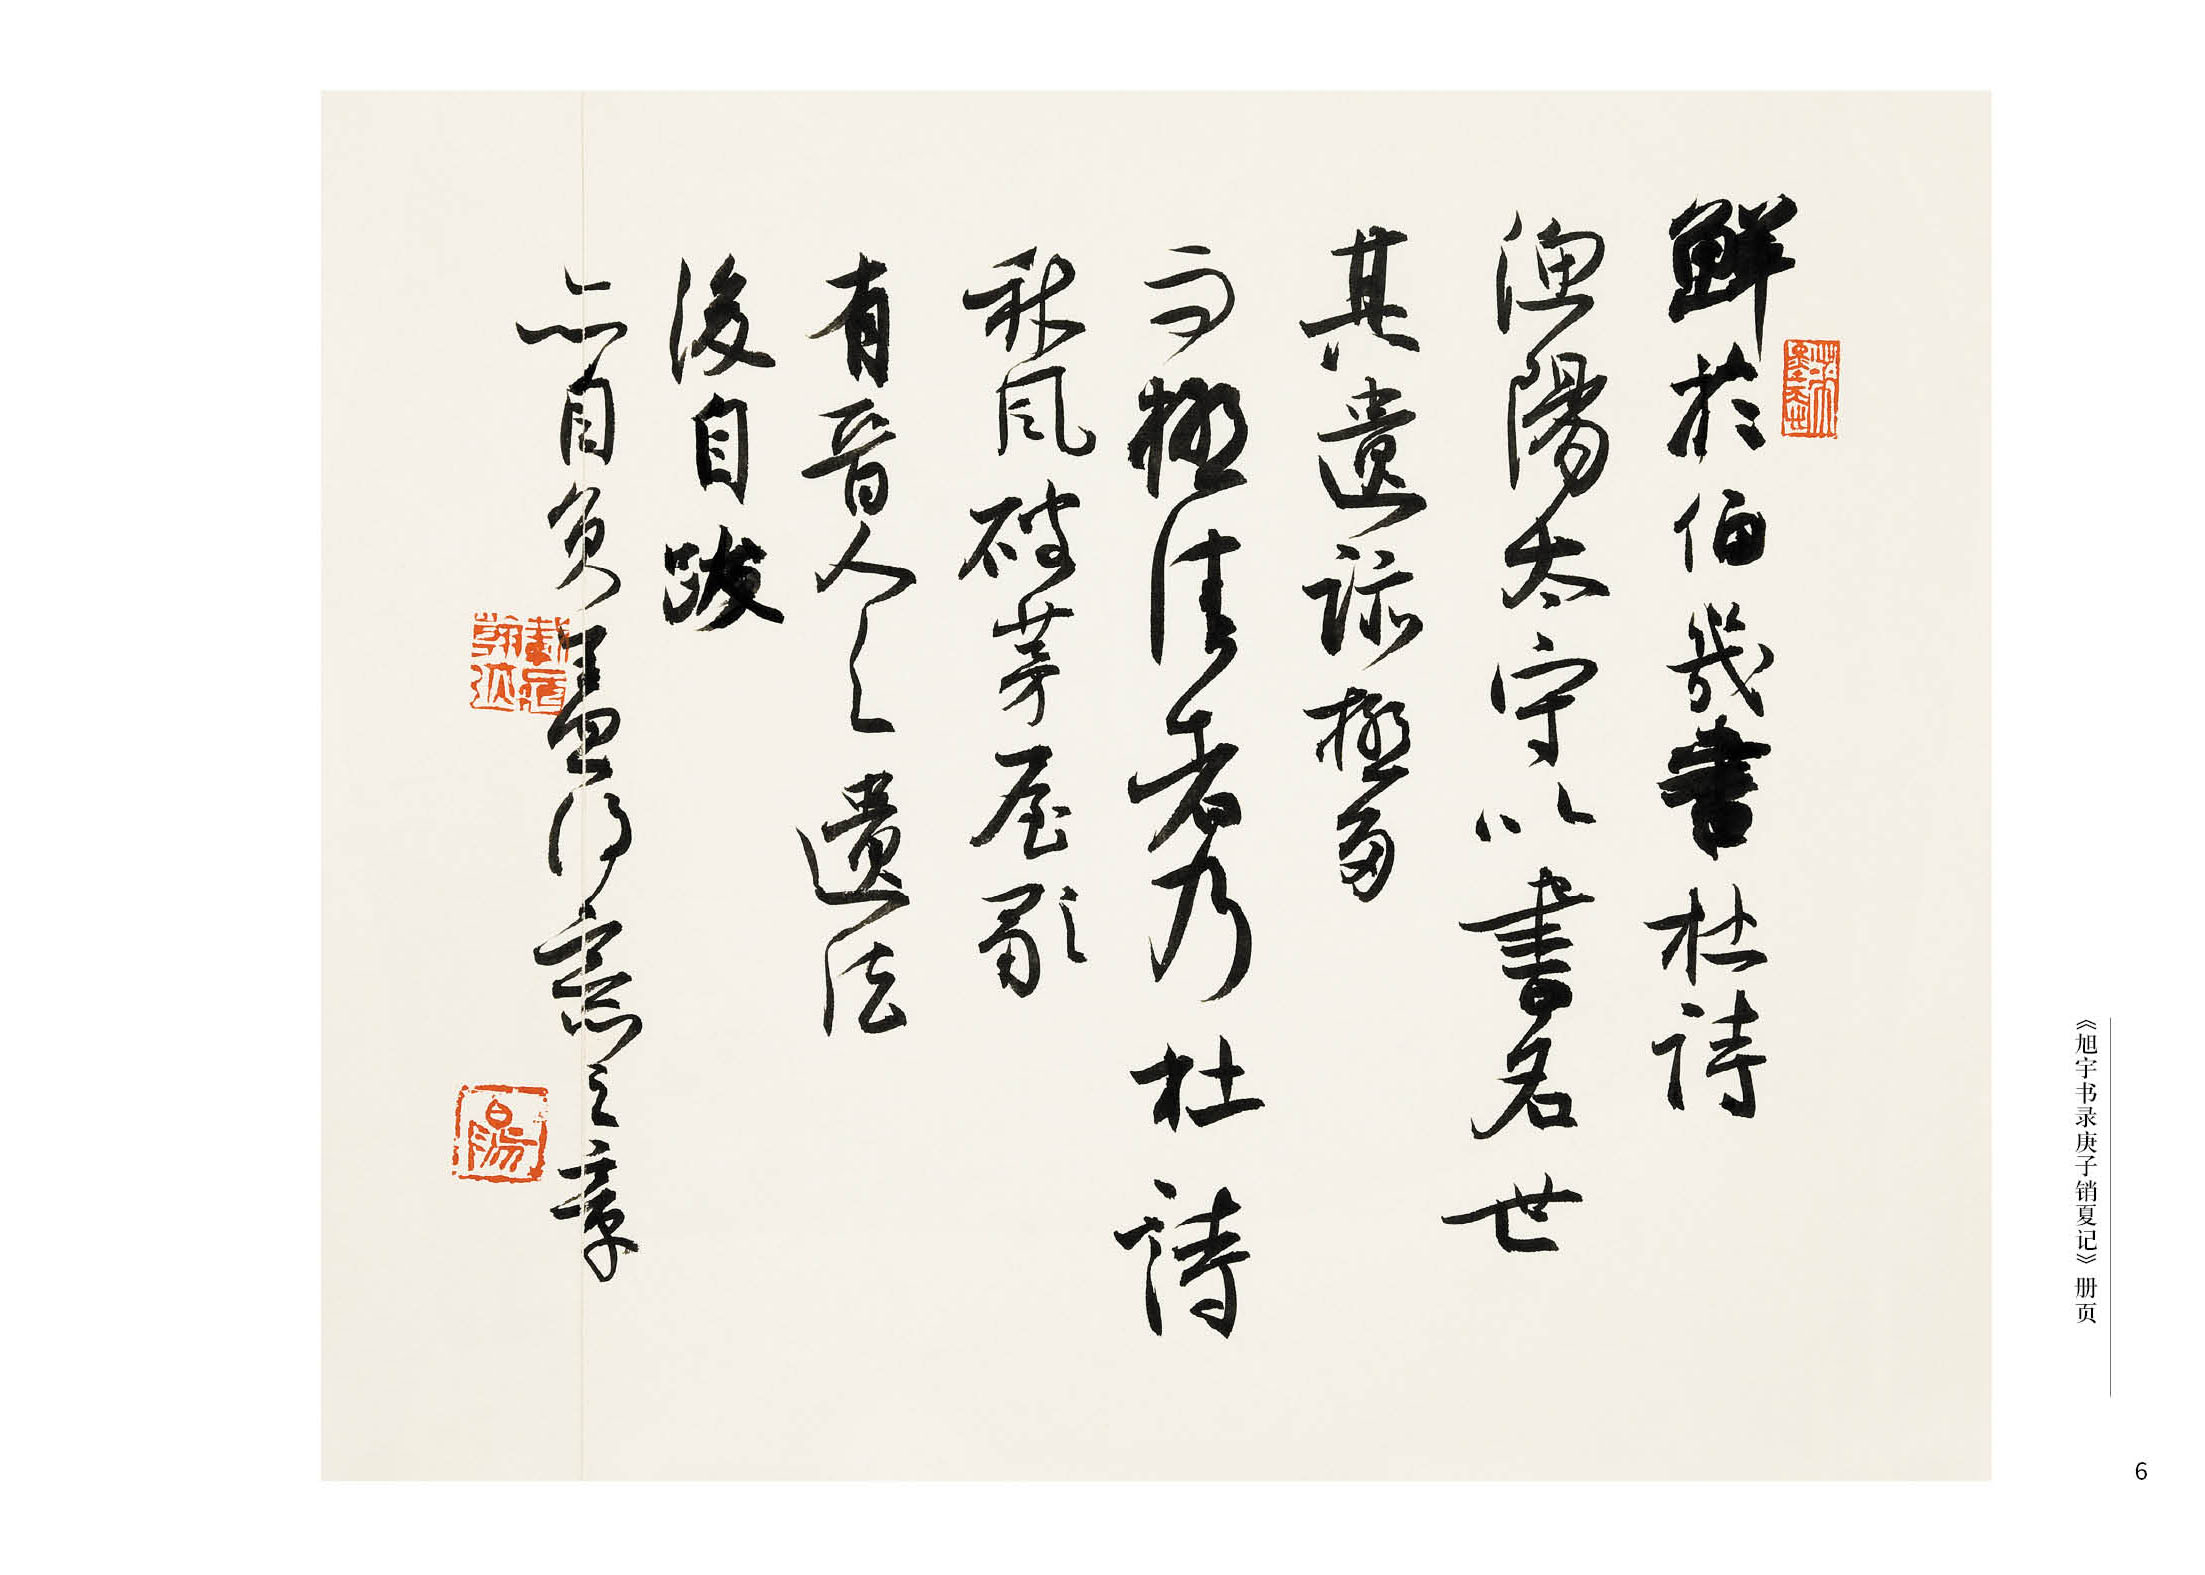 鮮於伯幾書杜詩
漁陽太守以書名世
其遺跡極多
而極佳者乃杜詩
秋風破茅屋歌
有晉人之遺法
後自跋
亦自負畫得意之章
《旭宇书录庚子销夏记》册页
6